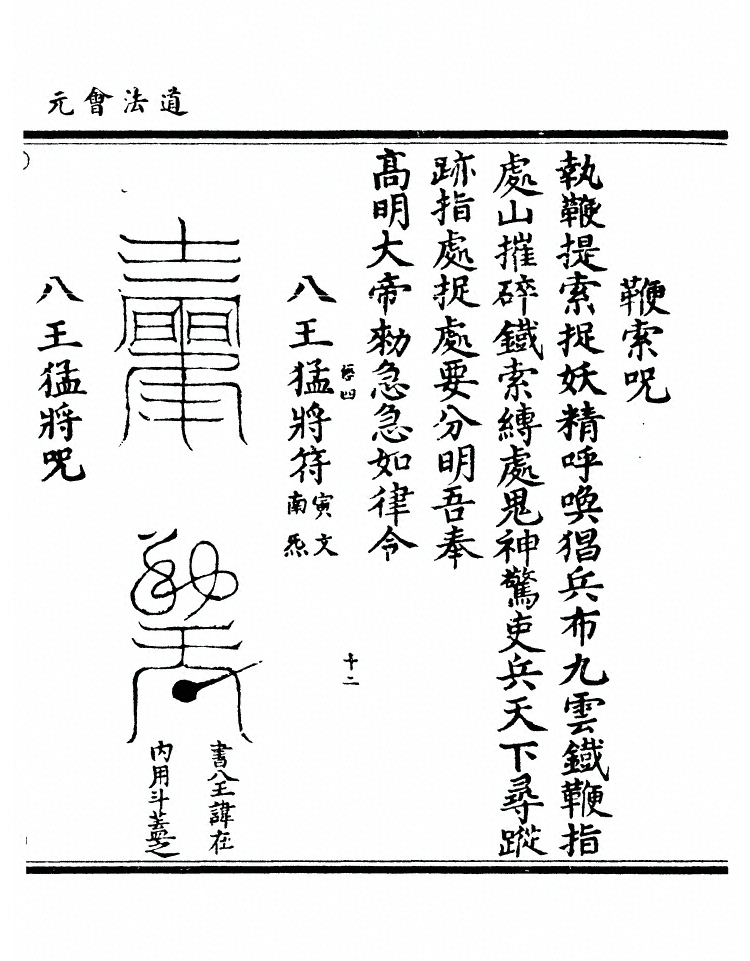 道法會元
鞭索呪
執鞭提索捉妖精呼喚猖兵布九雲鐵鞭指
處山摧碎鐵索縛處鬼神驚吏兵天下尋蹤
跡指處捉處要分明吾奉
高明大帝勑急急如律令
十二
八王猛將符
寅文
南炁
書八王諱在
內用斗蓋之
八王猛將呪